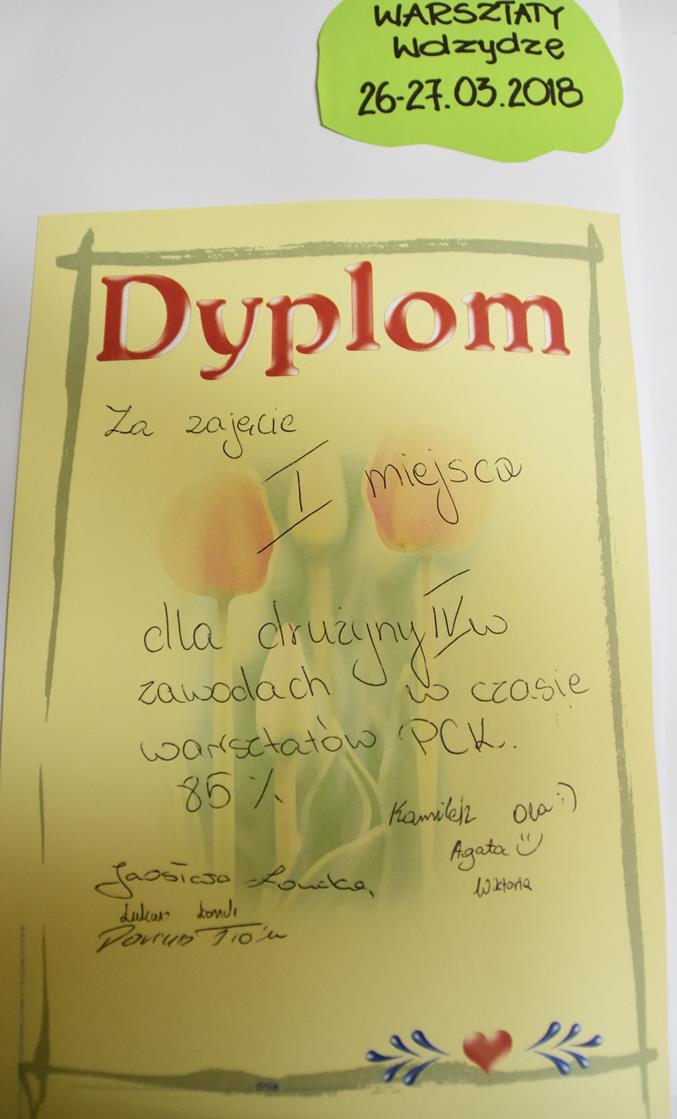 WARSZTATY
Wdzydze
26-27.03.2018
Dyplom
Za zajęcie
I miejsca
dla drużyny IV w
zawodach w czasie
warsztatów PCK.
85 %
Kamilek Ola :)
Agata
Wiktoria